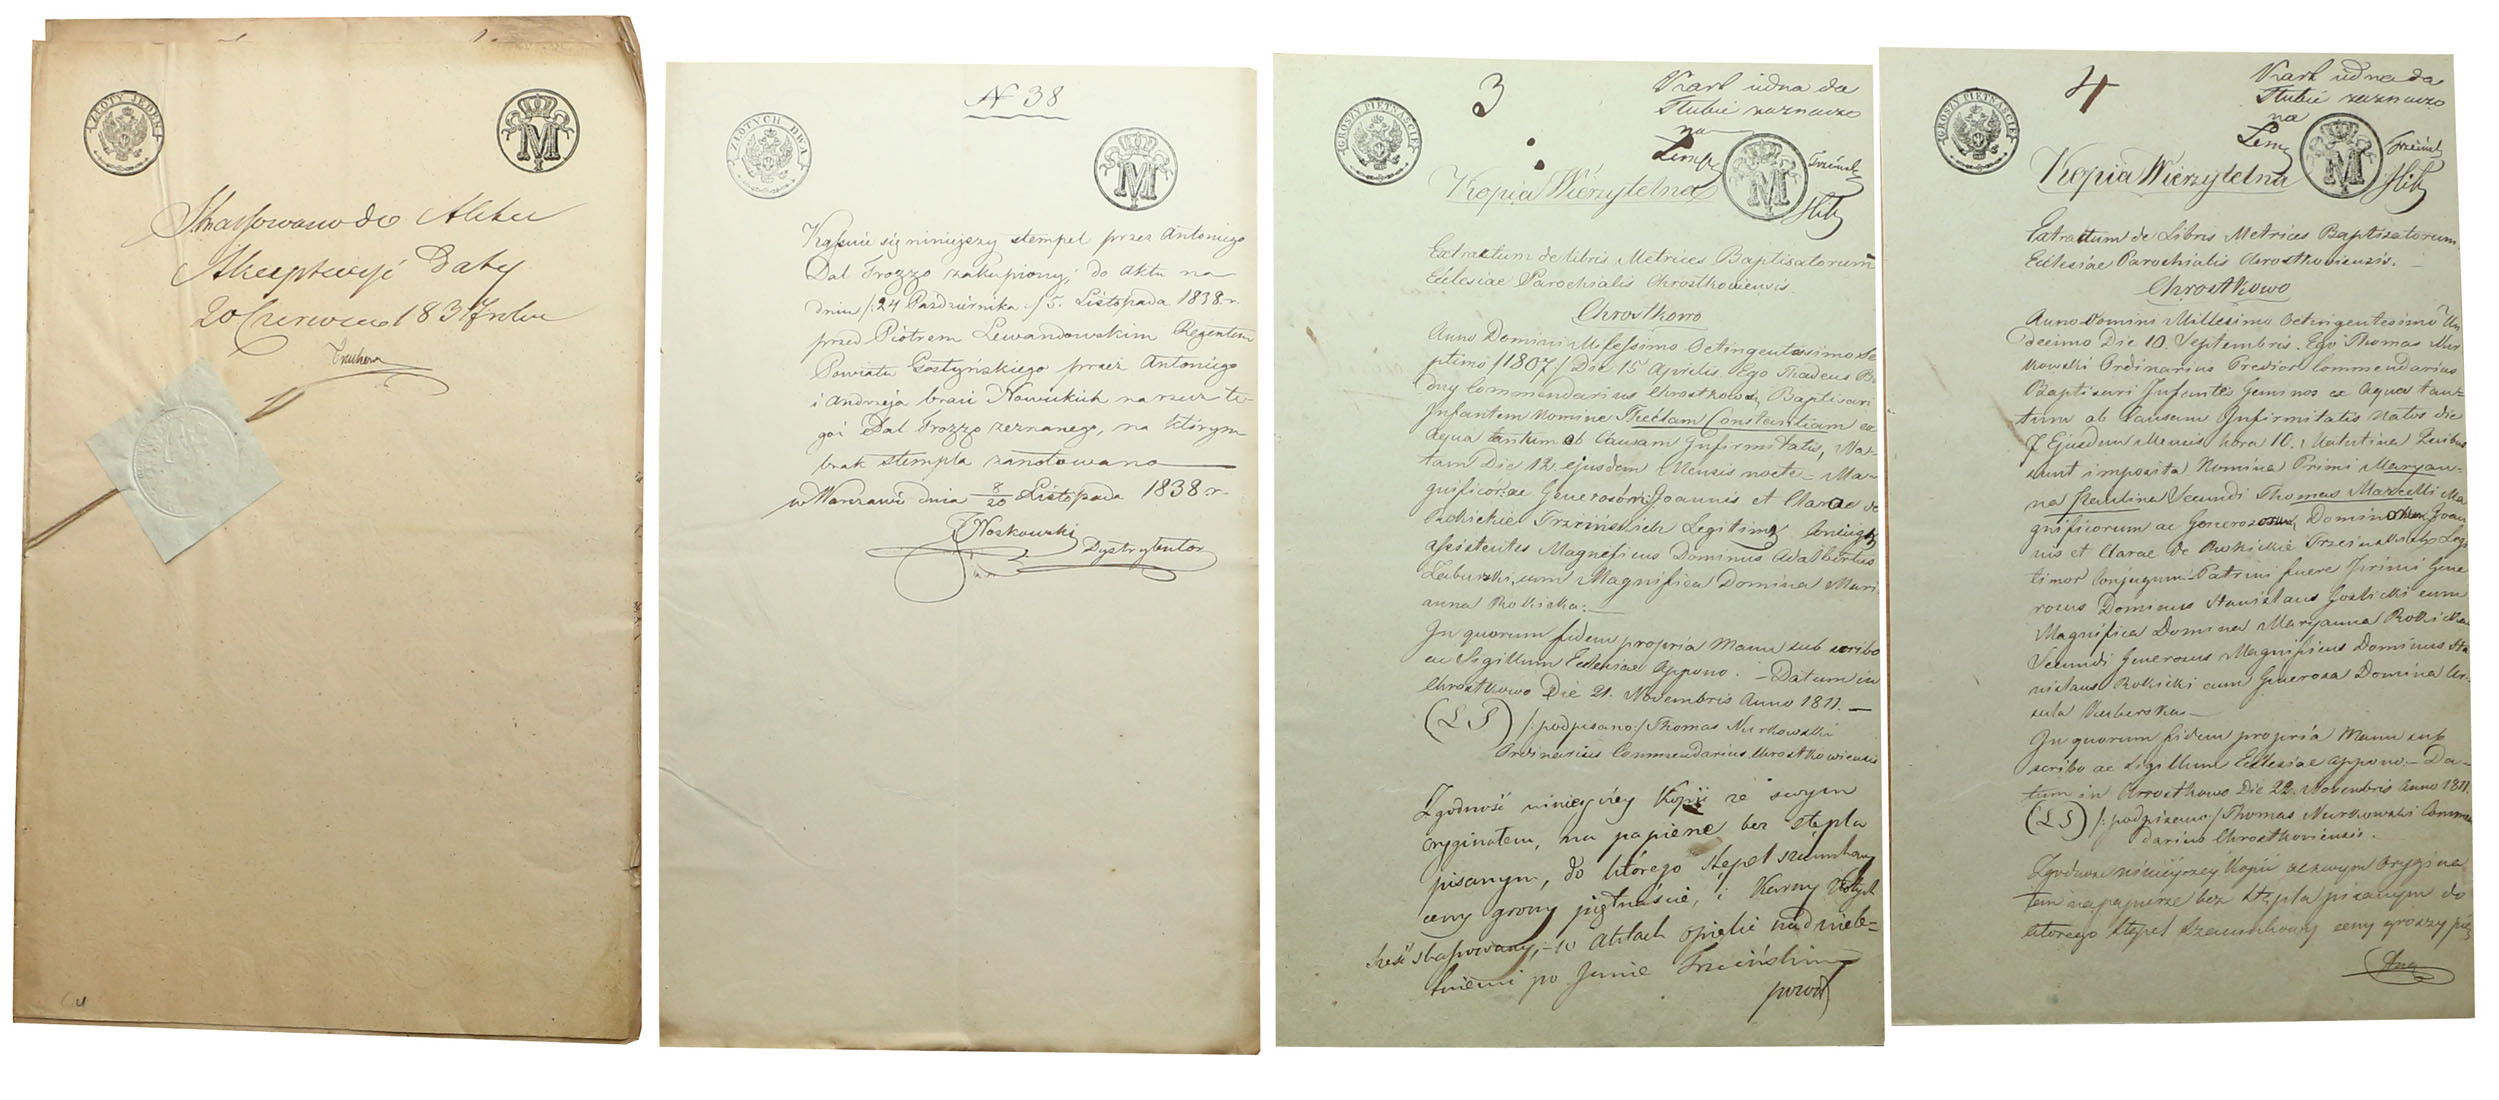 ZŁOTY JEDEN
M
Skassowano do Aktu
Akceptacyi Daty
20 Czerwca 1837 roku
N 38
ZŁOTYCH DWA
M
Kassuie się niniejszy stempel przez Antoniego
Dal Trozzo zakupiony, do aktu na
dniu /:24 Października :/ 5. Listopada 1838. r.
przed Piotrem Lewandowskim Regentem
Powiatu Gostyńskiego przez Antoniego
i Andrzeja braci Nowickich na rzecz te-
goż Dal Trozzo zeznanego, na którym
brak stempla zanotowano
w Warszawie dnia 8/20 Listopada 1838 r.
Noskowski
Dystrybutor
3
GROSZY PIĘTNAŚCIE
M
na
Kopia Wierzytelna
Extractum de libris Metrices Baptisatorum
Ecclesiae Parochialis Chrostkowiensis.
Chrostkowo
Anno Domini Milessimo Octingentissimo Se
ptimo /1807/ Die 15 Aprilis Ego Thadeus
Commendarius Chrostkowski Baptisavi
Infantem Nomine Theclam Constantiam ex
aqua tantum ob Causam Infirmitatis, Na-
tam Die 12 ejusdem Mensis nocte - Ma-
gnificor: ac Generosór: Joannis et Clarae de
Rokickie Trzcińskich Legitimor Coniugum
assistentes Magnificus Dominus Adalbertus
cum Magnifica Domina Mari
anna Rokicka.
In quorum fidem propria Manu sub scribo
ac Sigillum Ecclesiae appono. - Datum in
Chrostkowo Die 21. Novembris Anno 1811. -
(L S) /:podpisano:/ Thomas Nurkowski
Ordinarius Commendarius Chrostkowiensis
Zgodność niniejszéy Kopii ze swym
oryginałem, na papierze bez stępla
pisanym, do którego stępel szacunkowy
ceny groszy piętnaście, i Karny Złotych
sześć skassowany, - w Aktach opieki nad niele-
tniemi po Janie Trzcińskim
4
GROSZY PIĘTNAŚCIE
M
na
Kopia Wierzytelna
Extractum de Libris Metrices Baptisatorum
Ecclesiae Parochialis Chrostkoviensis.
Chrostkowo
Anno Domini Millesimo Octingentesimo Un
decimo Die 10. Septembris. Ego Thomas Nur
kowski Ordinarius Commendarius
Baptisavi Infantes Geminos ex Aqua tan-
tum ob Causam Infirmitatis Natos die
7 Ejusdem Mensis hora 10. Matutina Quibus
sunt imposita Nomina Primi Maryan-
na Paulina Secundi Thomas Marcelli Ma
gnificorum ac Generosorum Dominorum Joan
nis et Clarae de Rokickie Trzcińskich Leg
timor Conjugum. Patrini fuere Primi Gene
rosus Dominus Stanislaus Goslicki cum
Magnifica Domina Maryanna Rokicka
Secundi Generosus Magnificus Dominus Sta
nislaus Rokicki cum Generosa Domina Ur-
sula
In quorum fidem propria Manu sub
scribo ac Sigillum Ecclesiae appono. - Da-
tum in Chrostkowo Die 22. Novembris Anno 1811.
(L S) /:podpisano:/ Thomas Nurkowski Commen
darius Chrostkoviensis.
Zgodność niniejszey Kopii ze swym Orygina
łem na papierze bez stępla pisanym do
którego stępel szacunkowy ceny groszy pię